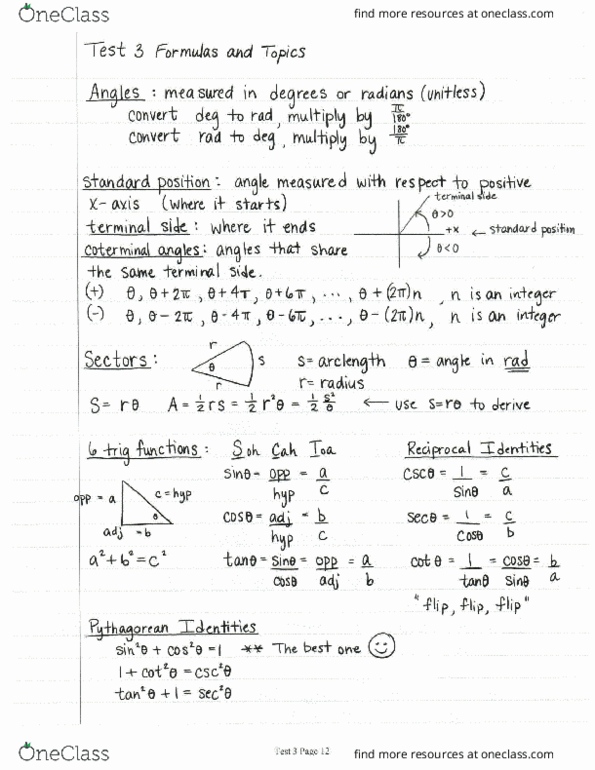 OneClass find more resources at oneclass.com
Test 3 Formulas and Topics
Angles : measured in degrees or radians (unitless)
convert deg to rad, multiply by π/180°
convert rad to deg, multiply by 180°/π
standard position : angle measured with respect to positive
x-axis (where it starts)
terminal side : where it ends
coterminal angles : angles that share
the same terminal side.
terminal side
θ>0
+x ← standard position
θ<0
(+) θ, θ+2π, θ+4π, θ+6π, ..., θ+(2π)n, n is an integer
(-) θ, θ-2π, θ-4π, θ-6π, ..., θ-(2π)n, n is an integer
Sectors :
r
θ
s
r
s = arclength θ = angle in rad
r = radius
S = rθ A = 1/2 rs = 1/2 r²θ = 1/2 s²/θ ← use s=rθ to derive
6 trig functions : Soh Cah Toa Reciprocal Identities
opp = a
c = hyp
θ
adj = b
a² + b² = c²
sinθ = opp/hyp = a/c
cosθ = adj/hyp = b/c
tanθ = sinθ/cosθ = opp/adj = a/b
cscθ = 1/sinθ = c/a
secθ = 1/cosθ = c/b
cotθ = 1/tanθ = cosθ/sinθ = b/a
"flip, flip, flip"
Pythagorean Identities
sin²θ + cos²θ = 1 ** The best one
1 + cot²θ = csc²θ
tan²θ + 1 = sec²θ
Test 3 Page 12
OneClass find more resources at oneclass.com